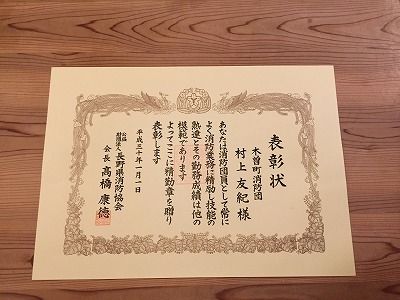 表彰状
木曽町消防団
村上友紀様
あなたは消防団員として常に
よく消防業務に精励し技能の
熟達とその勤務成績は他の
模範であります
よってここに精勤章を贈り
表彰します
平成三十年一月二一日
公益財団法人長野県消防協会
会長高橋康徳